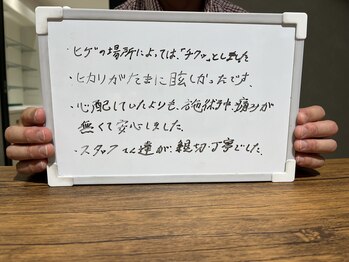 ・ヒゲの場所によっては、「チクッ」としました
・ヒカリがたまに眩しかったです。
・心配していたよりも、施術中痛みが
無くて安心しました。
・スタッフさん達が、親切・丁寧でした。